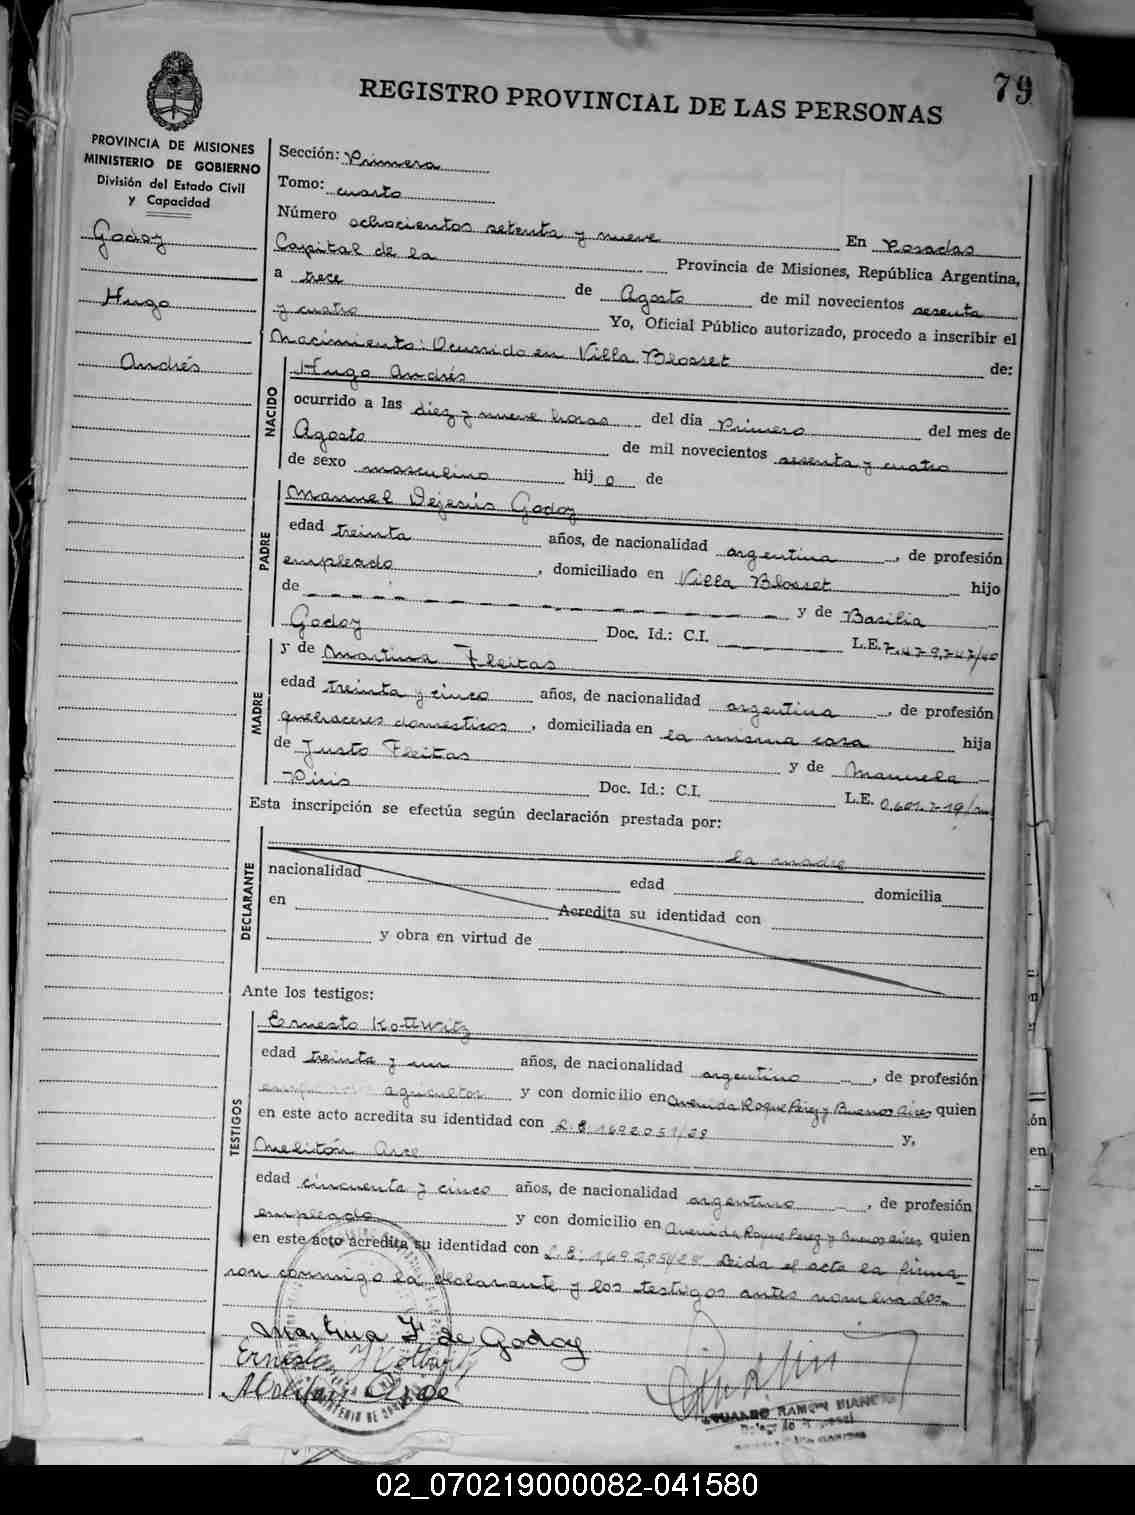 79
REGISTRO PROVINCIAL DE LAS PERSONAS
PROVINCIA DE MISIONES
MINISTERIO DE GOBIERNO
División del Estado Civil
y Capacidad
Godoy
Hugo
Andrés
Sección: Primera
Tomo: cuarto
Número ochocientos setenta y nueve En Posadas
Capital de la Provincia de Misiones, República Argentina,
a trece de Agosto de mil novecientos sesenta
y cuatro Yo, Oficial Público autorizado, procedo a inscribir el
Nacimiento: Ocurrido en Villa Blosset de:
NACIDO
Hugo Andrés
ocurrido a las diez y nueve horas del día Primero del mes de
Agosto de mil novecientos sesenta y cuatro
de sexo masculino hij o de
PADRE
Manuel Dejesús Godoy
edad treinta años, de nacionalidad argentina, de profesión
empleado, domiciliado en Villa Blosset hijo
de y de Basilia
Godoy Doc. Id.: C.I. L.E. 7.479,747/40
MADRE
y de Martina Fleitas
edad treinta y cinco años, de nacionalidad argentina, de profesión
quehaceres domesticos, domiciliada en la misma casa hija
de Justo Fleitas y de Manuela
Piris Doc. Id.: C.I. L.E. 0.601.719/
Esta inscripción se efectúa según declaración prestada por:
DECLARANTE
la madre
nacionalidad edad domicilia
en Acredita su identidad con
y obra en virtud de
Ante los testigos:
TESTIGOS
Ernesto Kottwitz
edad treinta y un años, de nacionalidad argentino, de profesión
agricultor y con domicilio en Avenida Roque Perez y Buenos Aires quien
en este acto acredita su identidad con L.E. 1692051/28 y,
Melitón Arce
edad cincuenta y cinco años, de nacionalidad argentino, de profesión
empleado y con domicilio en Avenida Roque Perez y Buenos Aires quien
en este acto acredita su identidad con L.E. 1,692051/28 Leida el acta la firma-
ron conmigo la declarante y los testigos antes nombrados.
Martina F. de Godoy
Ernesto Kottwitz
Meliton Arce
RAMON BIANCHI
02_070219000082-041580